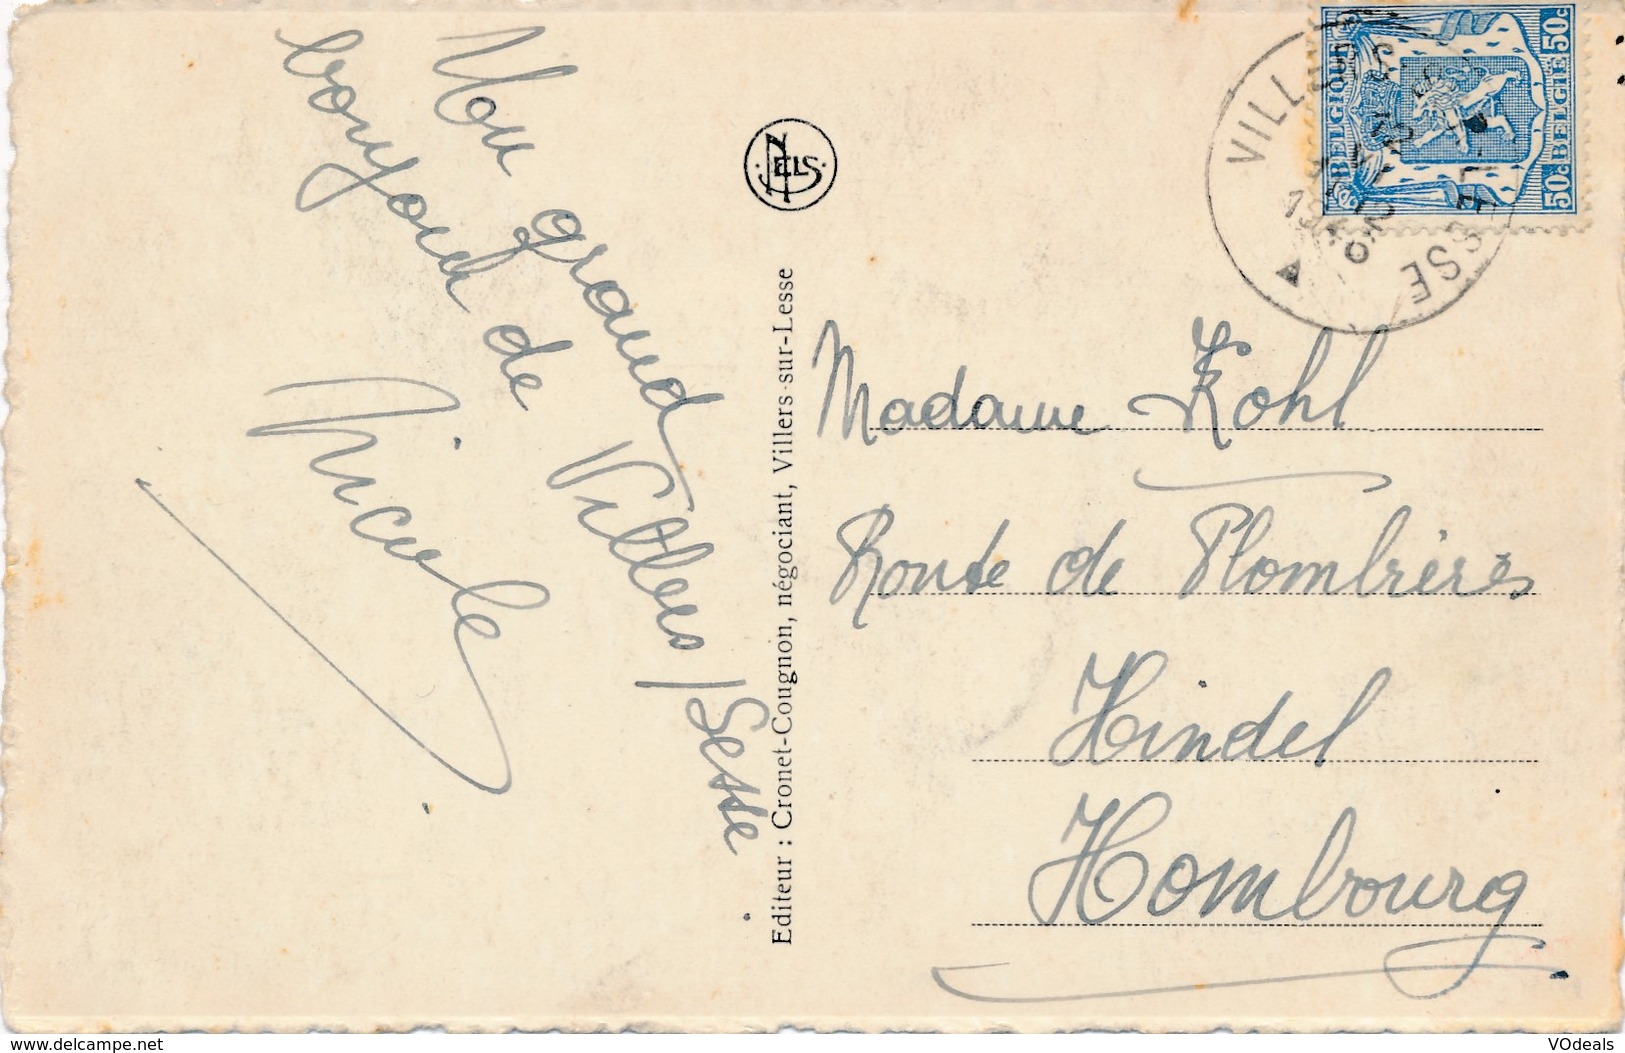 Mon grand
bonjour de Villers/Lesse
Nicole
NELS
Editeur : Cronet-Cougnon, négociant, Villers-sur-Lesse
BELGIQUE 50c
50c BELGIE
VILLERS-SUR-LESSE
Madame Kohl
Route de Plombières
Hindel
Hombourg
www.delcampe.net
VOdeals